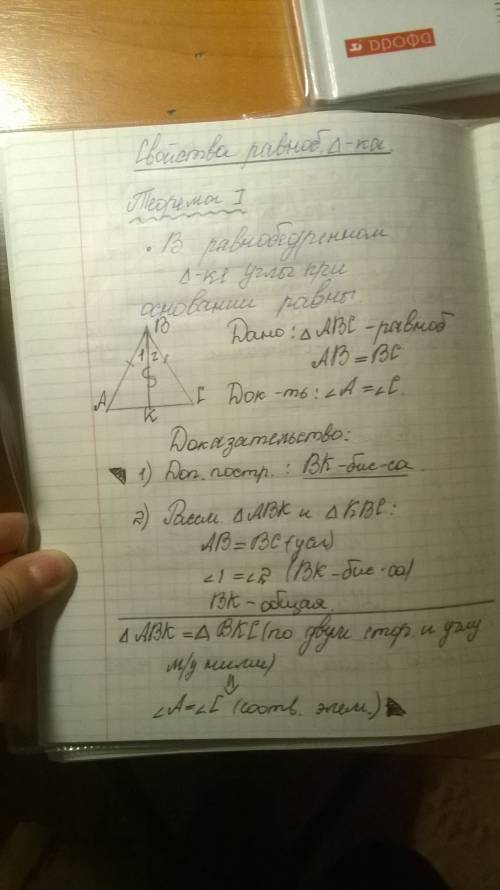 ДРОФА
Свойства равноб. Δ-ка.
Теорема I
• В равнобедренном
Δ-ке углы при
основании равны.
B
1 2
A
K
C
Дано: Δ ABC - равноб
AB = BC
Док-ть: ∠A = ∠C.
Доказательство:
1) Доп. постр.: BK - бис-са.
2) Рассм Δ ABK и Δ KBC:
AB = BC (усл)
∠1 = ∠2 (BK - бис-са)
BK - общая.
Δ ABK = Δ BKC (по двум стор. и углу
м/у ними)
⇓
∠A = ∠C (соотв. элем.)